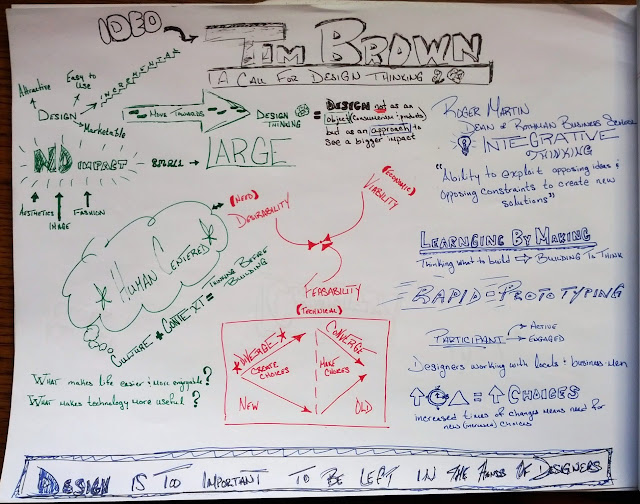 IDEO
TIM BROWN
A CALL FOR DESIGN THINKING
Attractive
Easy to Use
INCREMENTAL
DESIGN
Marketable
MOVE TOWARDS
DESIGN THINKING
= DESIGN not as an
object (Consumerism: products)
but as an approach to
see a bigger impact
NO IMPACT
SMALL
LARGE
AESTHETICS
IMAGE
FASHION
ROGER MARTIN
DEAN of ROTHMAN BUSINESS SCHOOL
INTEGRATIVE
THINKING
"Ability to exploit opposing ideas &
opposing constraints to create new
solutions"
(NEED)
DESIRABILITY
(Economic)
VIABILITY
FEASABILITY
(TECHNICAL)
HUMAN CENTERED
CULTURE + CONTEXT = THINKING BEFORE
BUILDING
LEARNGING BY MAKING
Thinking what to build → BUILDING TO THINK
RAPID-PROTOTYPING
PARTICIPANT
ACTIVE
ENGAGED
Designers working with locals + business men
= CHOICES
increased times of changes means need for
new choices
DIVERGE
CREATE
CHOICES
NEW
CONVERGE
MAKE
CHOICES
OLD
WHAT makes life easier & more enjoyable?
WHAT makes technology more useful?
DESIGN IS TOO IMPORTANT TO BE LEFT IN THE HANDS OF DESIGNERS